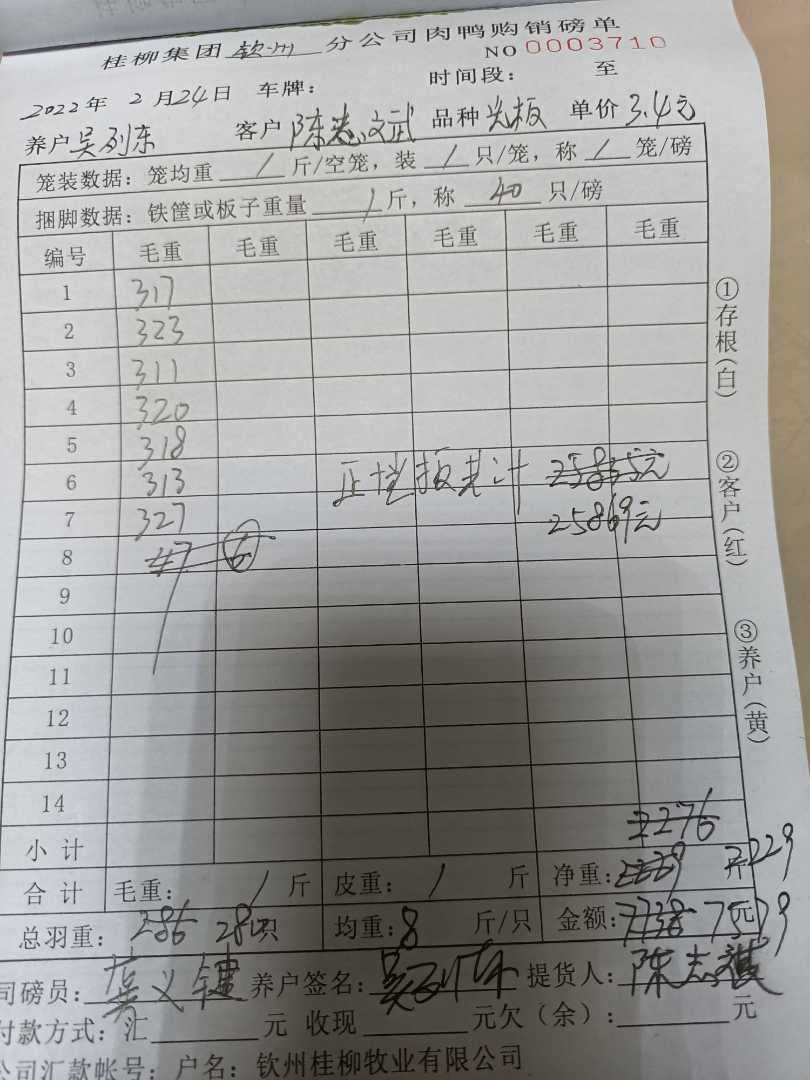 桂柳集团 钦州 分公司肉鸭购销磅单
NO 0003710
2022年 2月24日 车牌： 时间段： 至
养户 吴列东 客户 陈志文武 品种 光板 单价 3.4元
笼装数据：笼均重 / 斤/空笼，装 / 只/笼，称 / 笼/磅
捆脚数据：铁筐或板子重量 / 斤，称 40 只/磅
编号 毛重 毛重 毛重 毛重 毛重 毛重
1 317
2 323
3 311
4 320
5 318
6 313
7 327
8
正档板共计
25869元
9
10
11
12
13
14
2276
小计
合计 毛重： / 斤 皮重： / 斤 净重： 斤 2229
总羽重： 286 280只 均重：8 斤/只 金额：7738 7579元
司磅员： 养户签名： 提货人：陈志祺
付款方式：汇 元 收现 元欠（余）： 元
公司汇款帐号：户名：钦州桂柳牧业有限公司
①存根(白)
②客户(红)
③养户(黄)